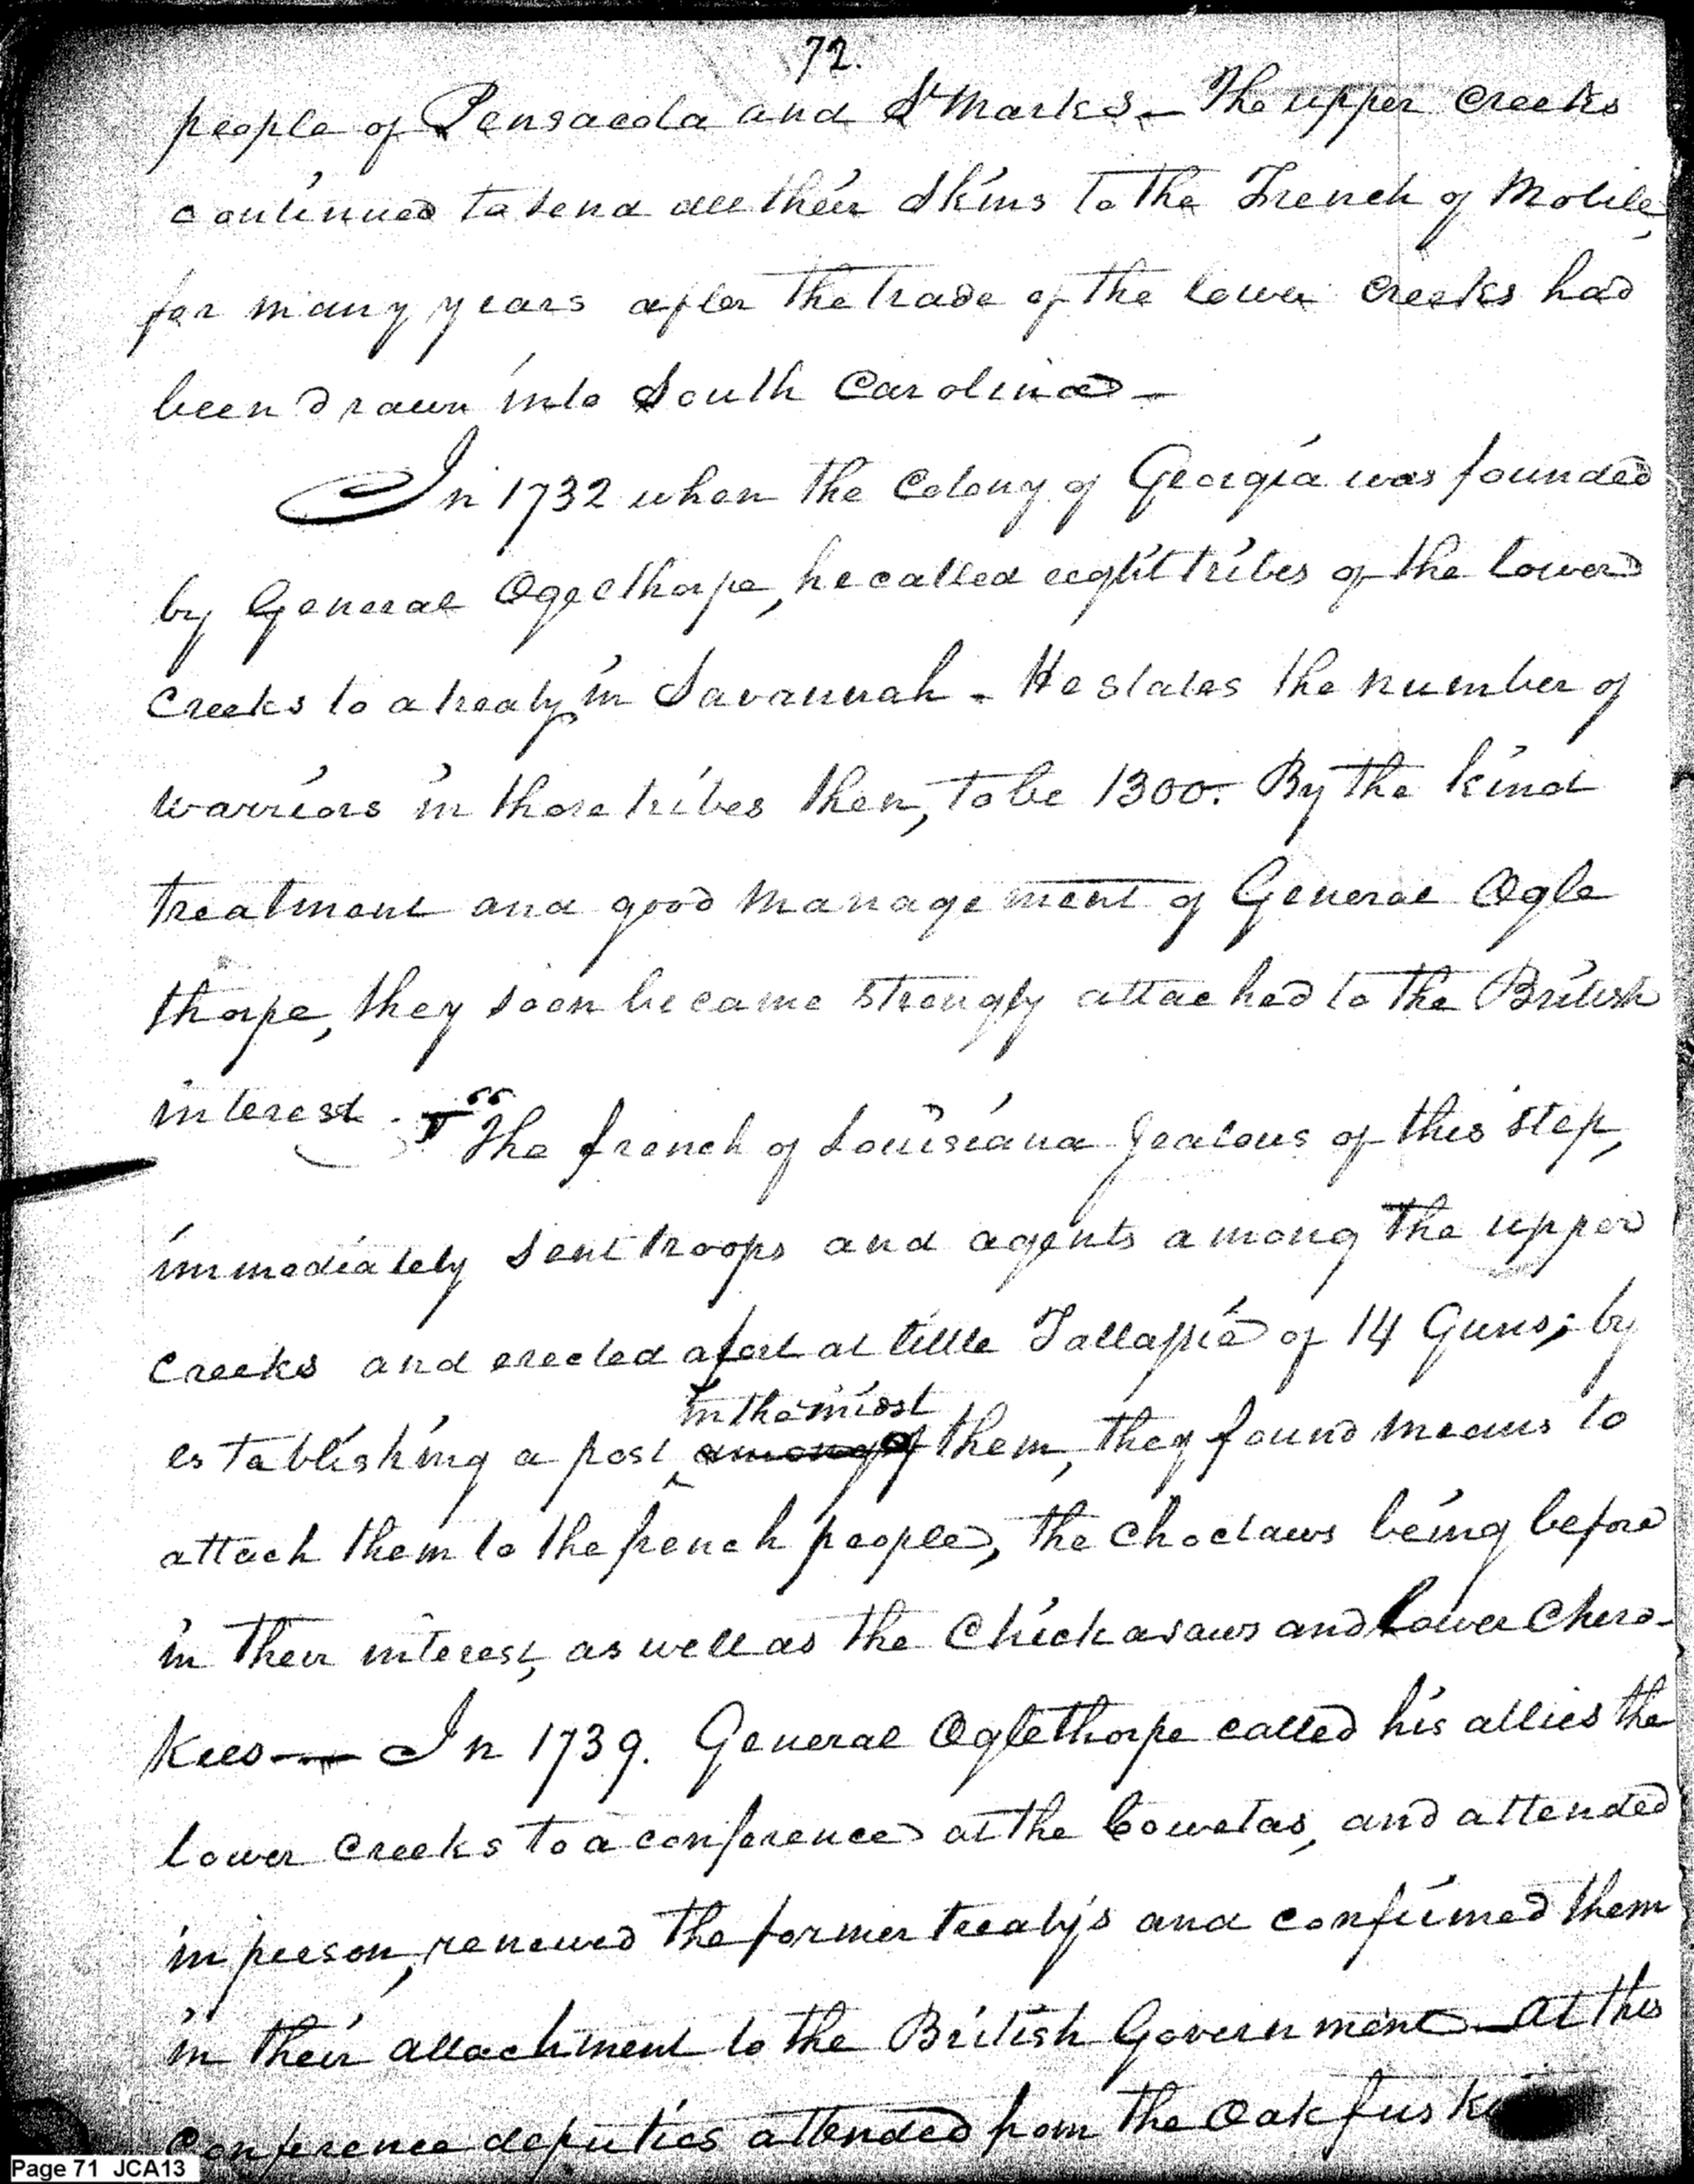 72.
people of Pensacola and St Marks - The upper Creeks
continued to send all their Skins to the French of Mobile,
for many years after the trade of the lower Creeks had
been drawn into South Carolina -
In 1732 when the Colony of Georgia was founded
by General Ogelthorpe, he called eight tribes of the lower
Creeks to a treaty in Savannah - He states the number of
warriors in those tribes then, to be 1300. By the kind
treatment and good management of General Ogle
thorpe, they soon became strongly attached to the British
interest. - "The french of Louisiana Jealous of this step,
immediately sent troops and agents among the upper
Creeks and erected a fort at little Tallasie of 14 Guns; by
in the midst
establishing a post among of them, they found means to
attach them to the french people, the Choctaws being before
in their interest, as well as the Chickasaws and lower Chero-
kees - In 1739. General Oglethorpe called his allies the
lower Creeks to a conference at the Cowetas, and attended
in person, renewed the former treaty's and confirmed them
in their attachment to the British Government - At this
Conference deputies attended from the
Page 71 JCA13